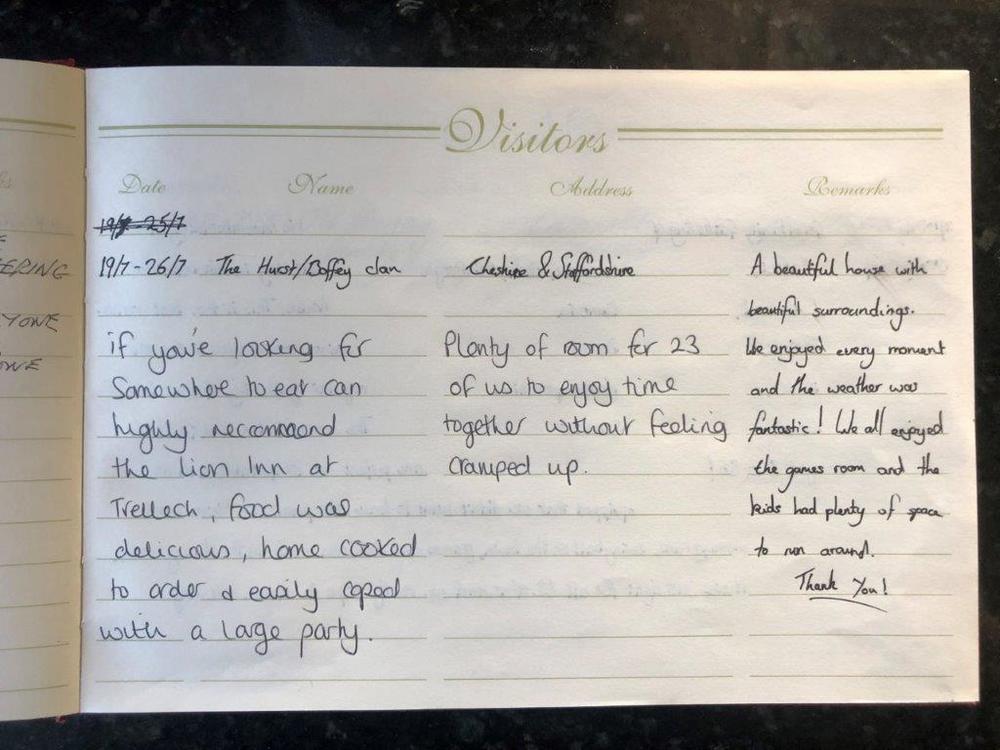 Visitors
Date Name Address Remarks
19/7 - 25/7
ERING
19/7 - 26/7 The Hurst/Boffey clan Cheshire & Staffordshire A beautiful house with
beautiful surroundings.
YONE
if you're looking for Plenty of room for 23 We enjoyed every moment
Somewhere to eat can of us to enjoy time and the weather was
highly reccommend together without feeling fantastic! We all enjoyed
the Lion Inn at cramped up. the games room and the
Trellech, food was kids had plenty of space
delicious, home cooked to run around.
to order & easily coped Thank You!
with a large party.